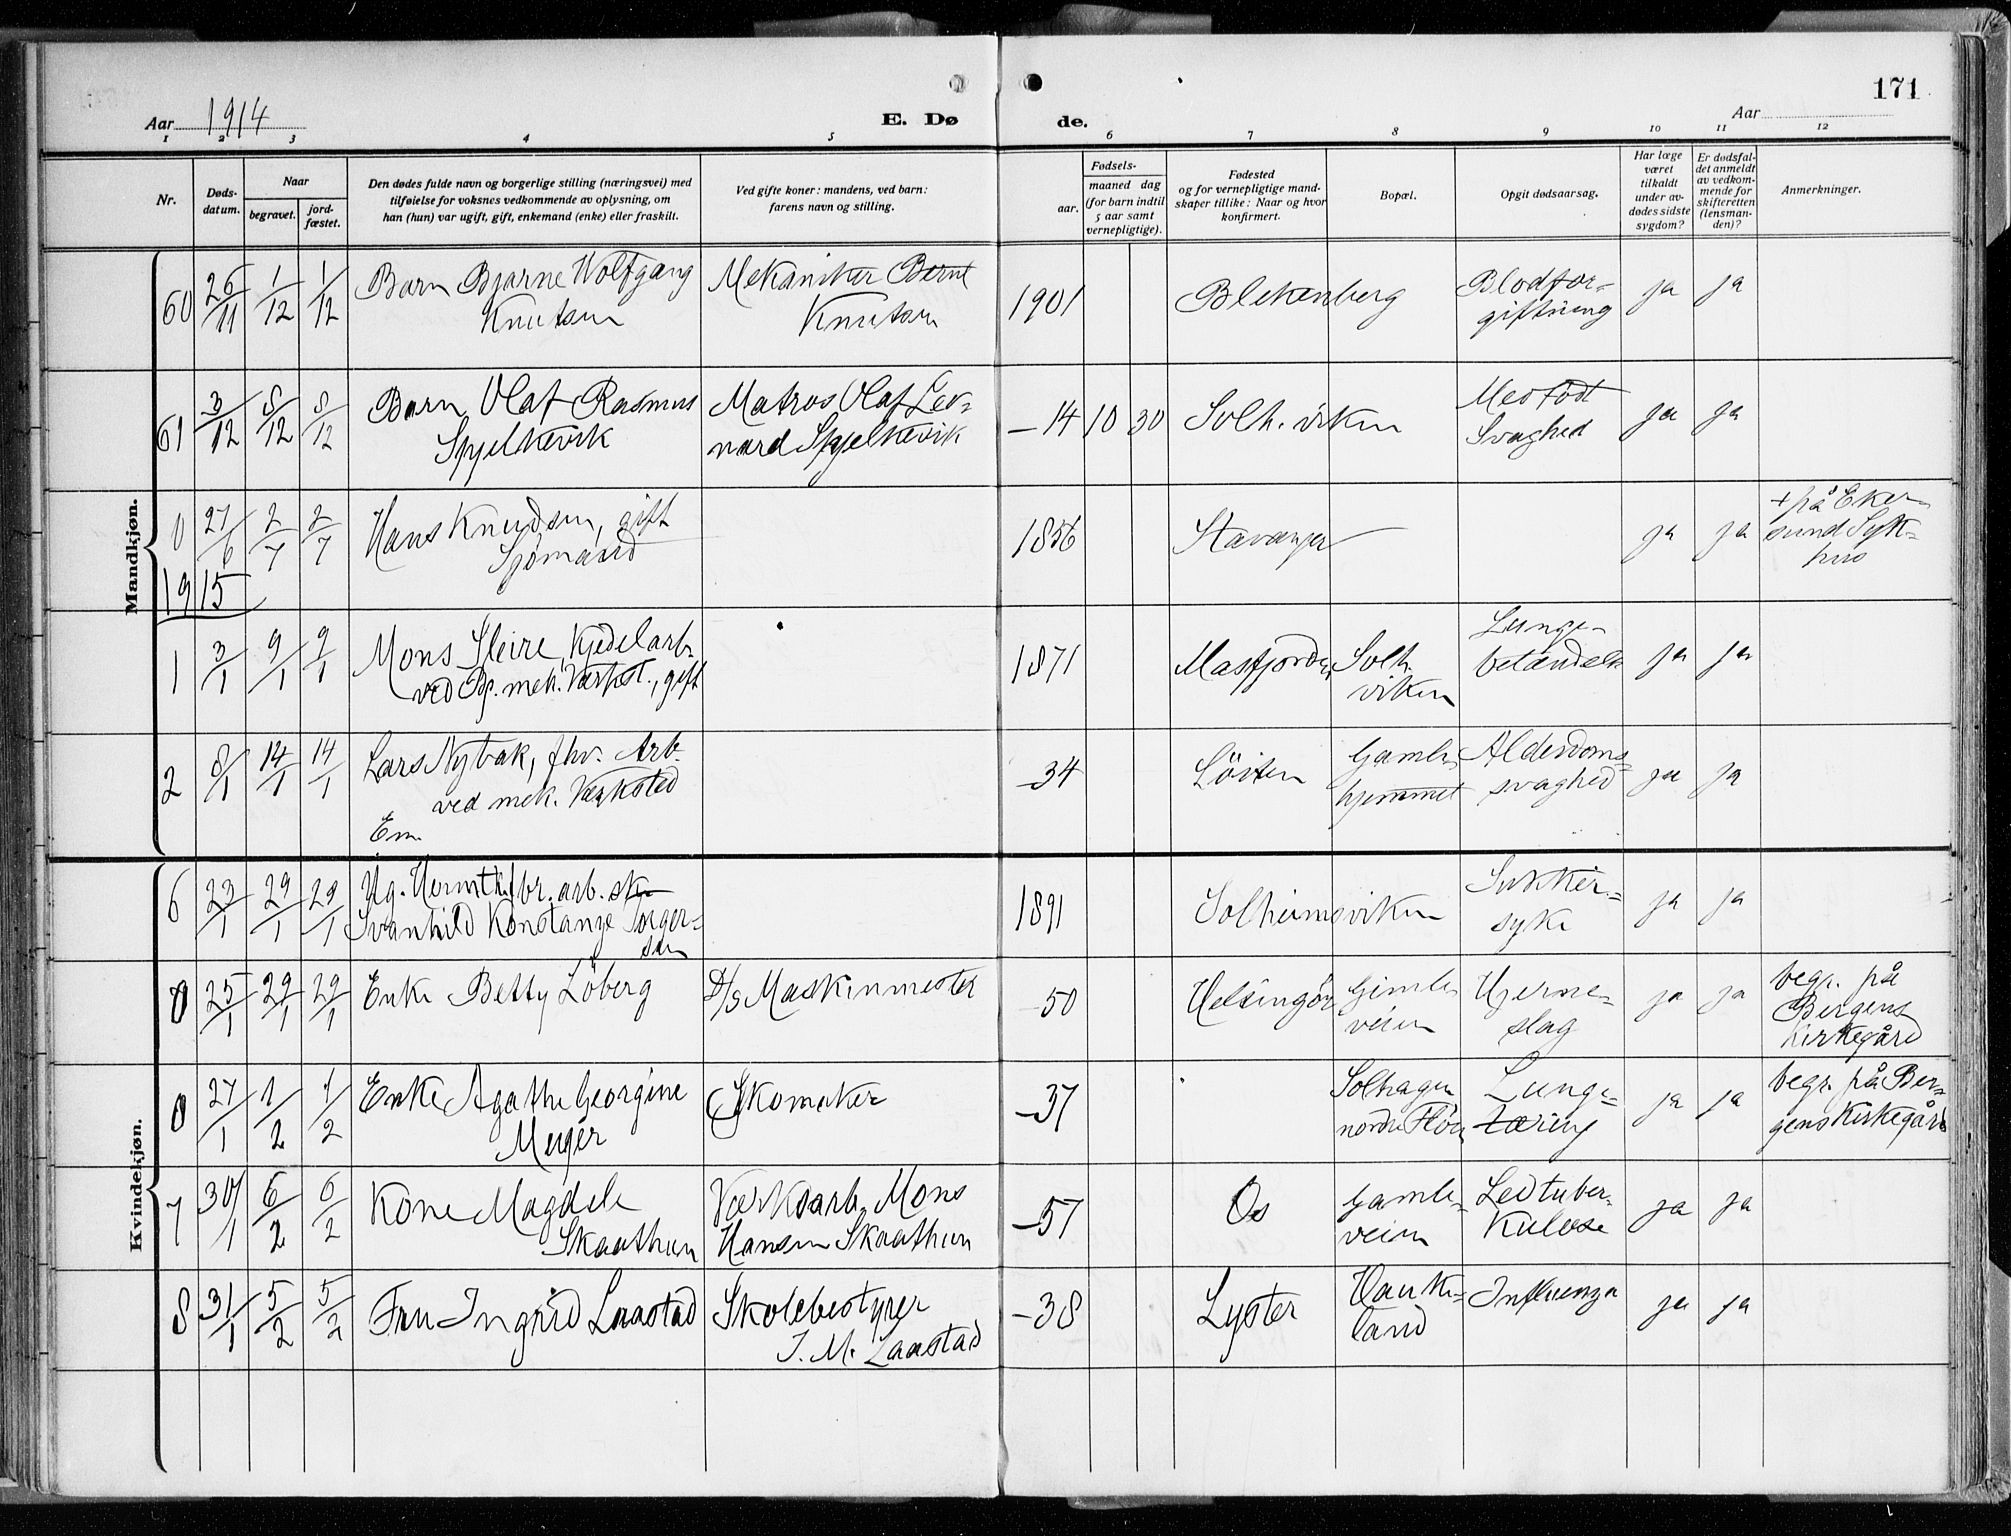 171
Aar 1914
E. Dø
de.
Aar
1 2 3 4 5 6 7 8 9 10 11 12
Nr.
Døds-
datum.
Naar
begravet.
jord-
fæstet.
Den dødes fulde navn og borgerlige stilling (næringsvei) med
tilføielse for voksnes vedkommende av oplysning, om
han (hun) var ugift, gift, enkemand (enke) eller fraskilt.
Ved gifte koner: mandens, ved barn:
farens navn og stilling.
Fødsels-
aar.
maaned dag
(for barn indtil
5 aar samt
vernepligtige).
Fødested
og for vernepligtige mand-
skaper tillike: Naar og hvor
konfirmert.
Bopæl.
Opgit dødsaarsag.
Har læge
været
tilkaldt
under av-
dødes sidste
sygdom?
Er dødsfal-
det anmeldt
av vedkom-
mende for
skifteretten
(lensman-
den)?
Anmerkninger.
Mandkjøn.
60 26/11 1/12 1/12 Barn Bjarne Wolfgang
Knutsen
Mekaniker Bernt
Knutsen
1901 Blekenberg
Blodfor-
giftning
ja ja
61 3/12 8/12 8/12 Barn Olaf Rasmus
Spjelkevik
Matros Olaf Leo-
nard Spjelkevik
-14 10 30 Solh. viken
Medfødt
Svaghed
ja ja
0 27/6 2/7 2/7 Hans Knudsen, gift
Sjømand
1856 Stavanger
ja ja
+ på Eker-
sund Syk-
hus
1915
1 3/1 9/1 9/1 Mons Sleire, Kjedelarb.
ved Bg. mek. Værkst., gift
1871 Masfjorden
Solh.
viken
Lunge-
betændelse
ja ja
2 8/1 14/1 14/1 Lars Nybak, fhv. Arb.
ved mek. Værksted
Em.
-34 Löiten
Gamle-
hjemmet
Alderdoms-
svaghed
ja ja
Kvindekjøn.
6 23/1 29/1 29/1 Ug. Hermtkfbr. arb. ske
Svanhild Konstanze Torger-
sen
1891 Solheimsviken
Sukker-
syke
ja ja
0 25/1 29/1 29/1 Enke Betty Löberg
D/S Maskinmester
-50 Helsingør
Gimle-
veien
Hjerne-
slag
ja ja
begr. på
Bergens
kirkegård
0 27/1 1/2 1/2 Enke Agathe Georgine
Meyer
Skomaker
-37
Solhagen
nordre Flöen
Lunge-
tæring
ja ja
begr. på Ber-
gens Kirkegård
7 30/1 6/2 6/2 Kone Magdele
Skaathun
Værksarb. Mons
Hansen Skaathun
-57 Os
Gamle-
veien
Ledtuber-
kulose
ja ja
8 31/1 5/2 5/2 Fru Ingrid Laastad
Skolebestyrer
J. M. Laastad
-38 Lyster
Hauke-
land
Influenza
ja ja